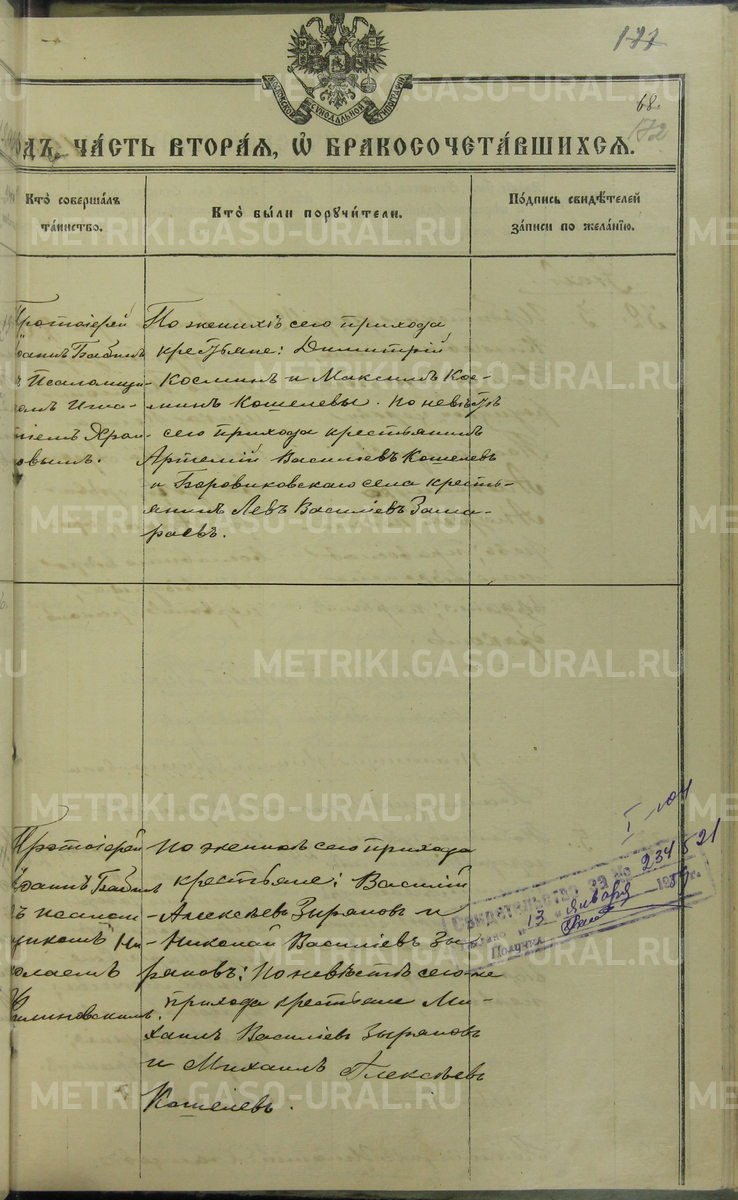 177
68.
172
МОСКОВСКОЙ СѴНОДАЛЬНОЙ ТИПОГРАФІИ
ОДЪ, ЧА́СТЬ ВТОРА́Я, Ѡ БРАКОСОЧЕТА́ВШИХСЯ.
Кто̀ соверша́лъ
та́инство.
Кто̀ бы́ли поручи́тели.
По́дпись свидѣ́телей
за́писи по жела́нїю.
Протоіерей
Іоаннъ Бабинъ
съ Псаломщи-
комъ Игна-
тіемъ Храм-
овымъ.
По женихѣ сего прихода
крестьяне: Димитрій
Космин и Максимъ Кос-
минъ Кошелевы. По невѣстѣ
сего прихода крестьянинъ
Артемій Василіевъ Кошелевъ
и Боровиковскаго села кресть-
янинъ Левъ Василіевъ Зама-
раевъ.
Протоіерей
Іоаннъ Бабинъ
съ псалом-
щикомъ Ни-
колаемъ
По женихѣ сего прихода
крестьяне: Василій
Алексѣевъ Зыряновъ и
Николай Василіевъ Зы-
ряновъ; По невѣстѣ сего же
прихода крестьяне Ми-
хаилъ Василіевъ Зыряновъ
и Михаилъ Алексѣевъ
Кошелевъ.
Свидетельство за № 234521
13 января 1989 г.
Получил
METRIKI.GASO-URAL.RU